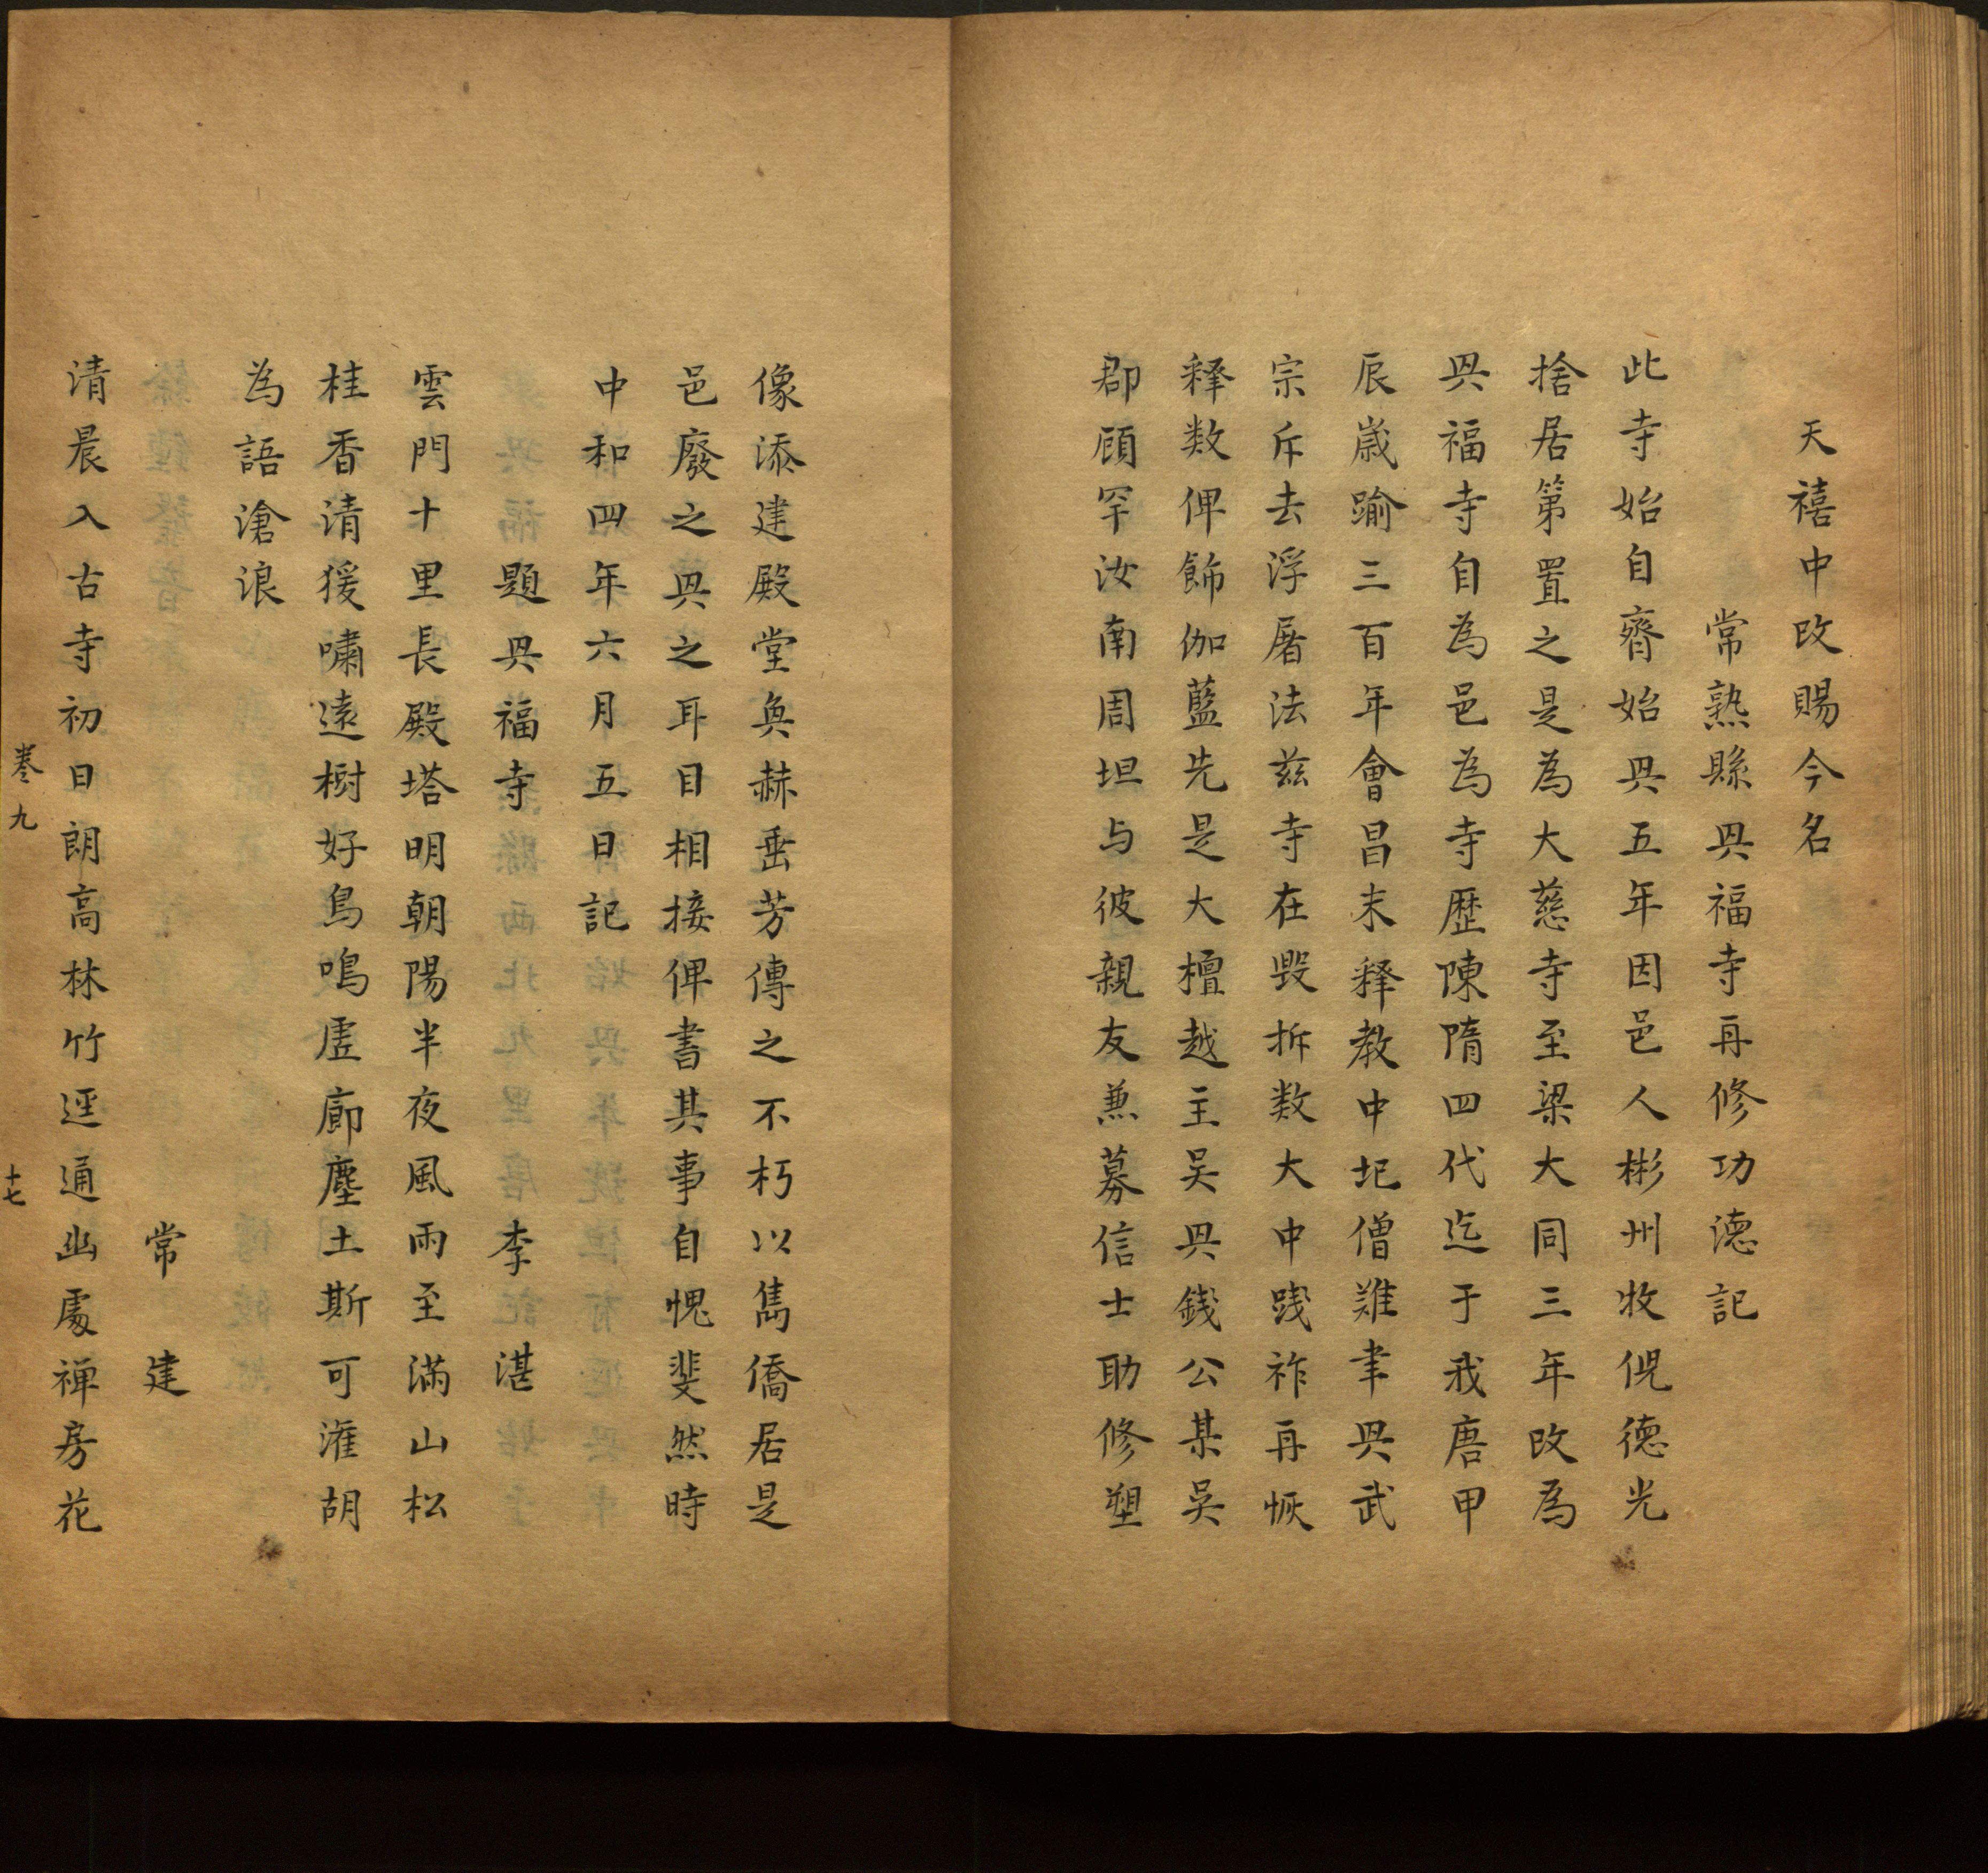 天禧中改賜今名
常熟縣興福寺再修功德記
此寺始自齊始興五年因邑人彬州牧倪德光
捨居第置之是為大慈寺至梁大同三年改為
興福寺自為邑為寺歷陳隋四代迄于我唐甲
辰歲踰三百年會昌末釋教中圮僧難聿興武
宗斥去浮屠法兹寺在毀拆数大中踐祚再恢
釋数俾飾伽藍先是大檀越主吴興錢公某吴
郡顧罕汝南周坦与彼親友兼募信士助修塑
像添建殿堂奐赫垂芳傳之不朽以雋僑居是
邑廢之興之耳目相接俾書其事自愧斐然時
中和四年六月五日記
題興福寺 李湛
雲門十里長殿塔明朝陽半夜風雨至滿山松
桂香清猨嘯遠樹好鳥鳴虛廊塵土斯可濯胡
為語滄浪
常建
清晨入古寺初日朗高林竹逕通幽處禅房花
卷九 十七